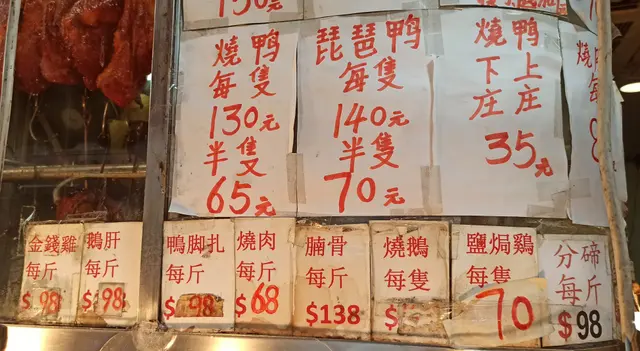 150元
燒鴨
每隻
130元
半隻
65元
琵琶鴨
每隻
140元
半隻
70元
燒鴨
下上
庄庄
35元
燒
每
8
金錢雞
每斤
$98
鵝肝
每斤
$98
鴨脚扎
每斤
$98
燒肉
每斤
$68
腩骨
每斤
$138
燒鵝
每隻
$
鹽焗鷄
每隻
70
分蹄
每斤
$98